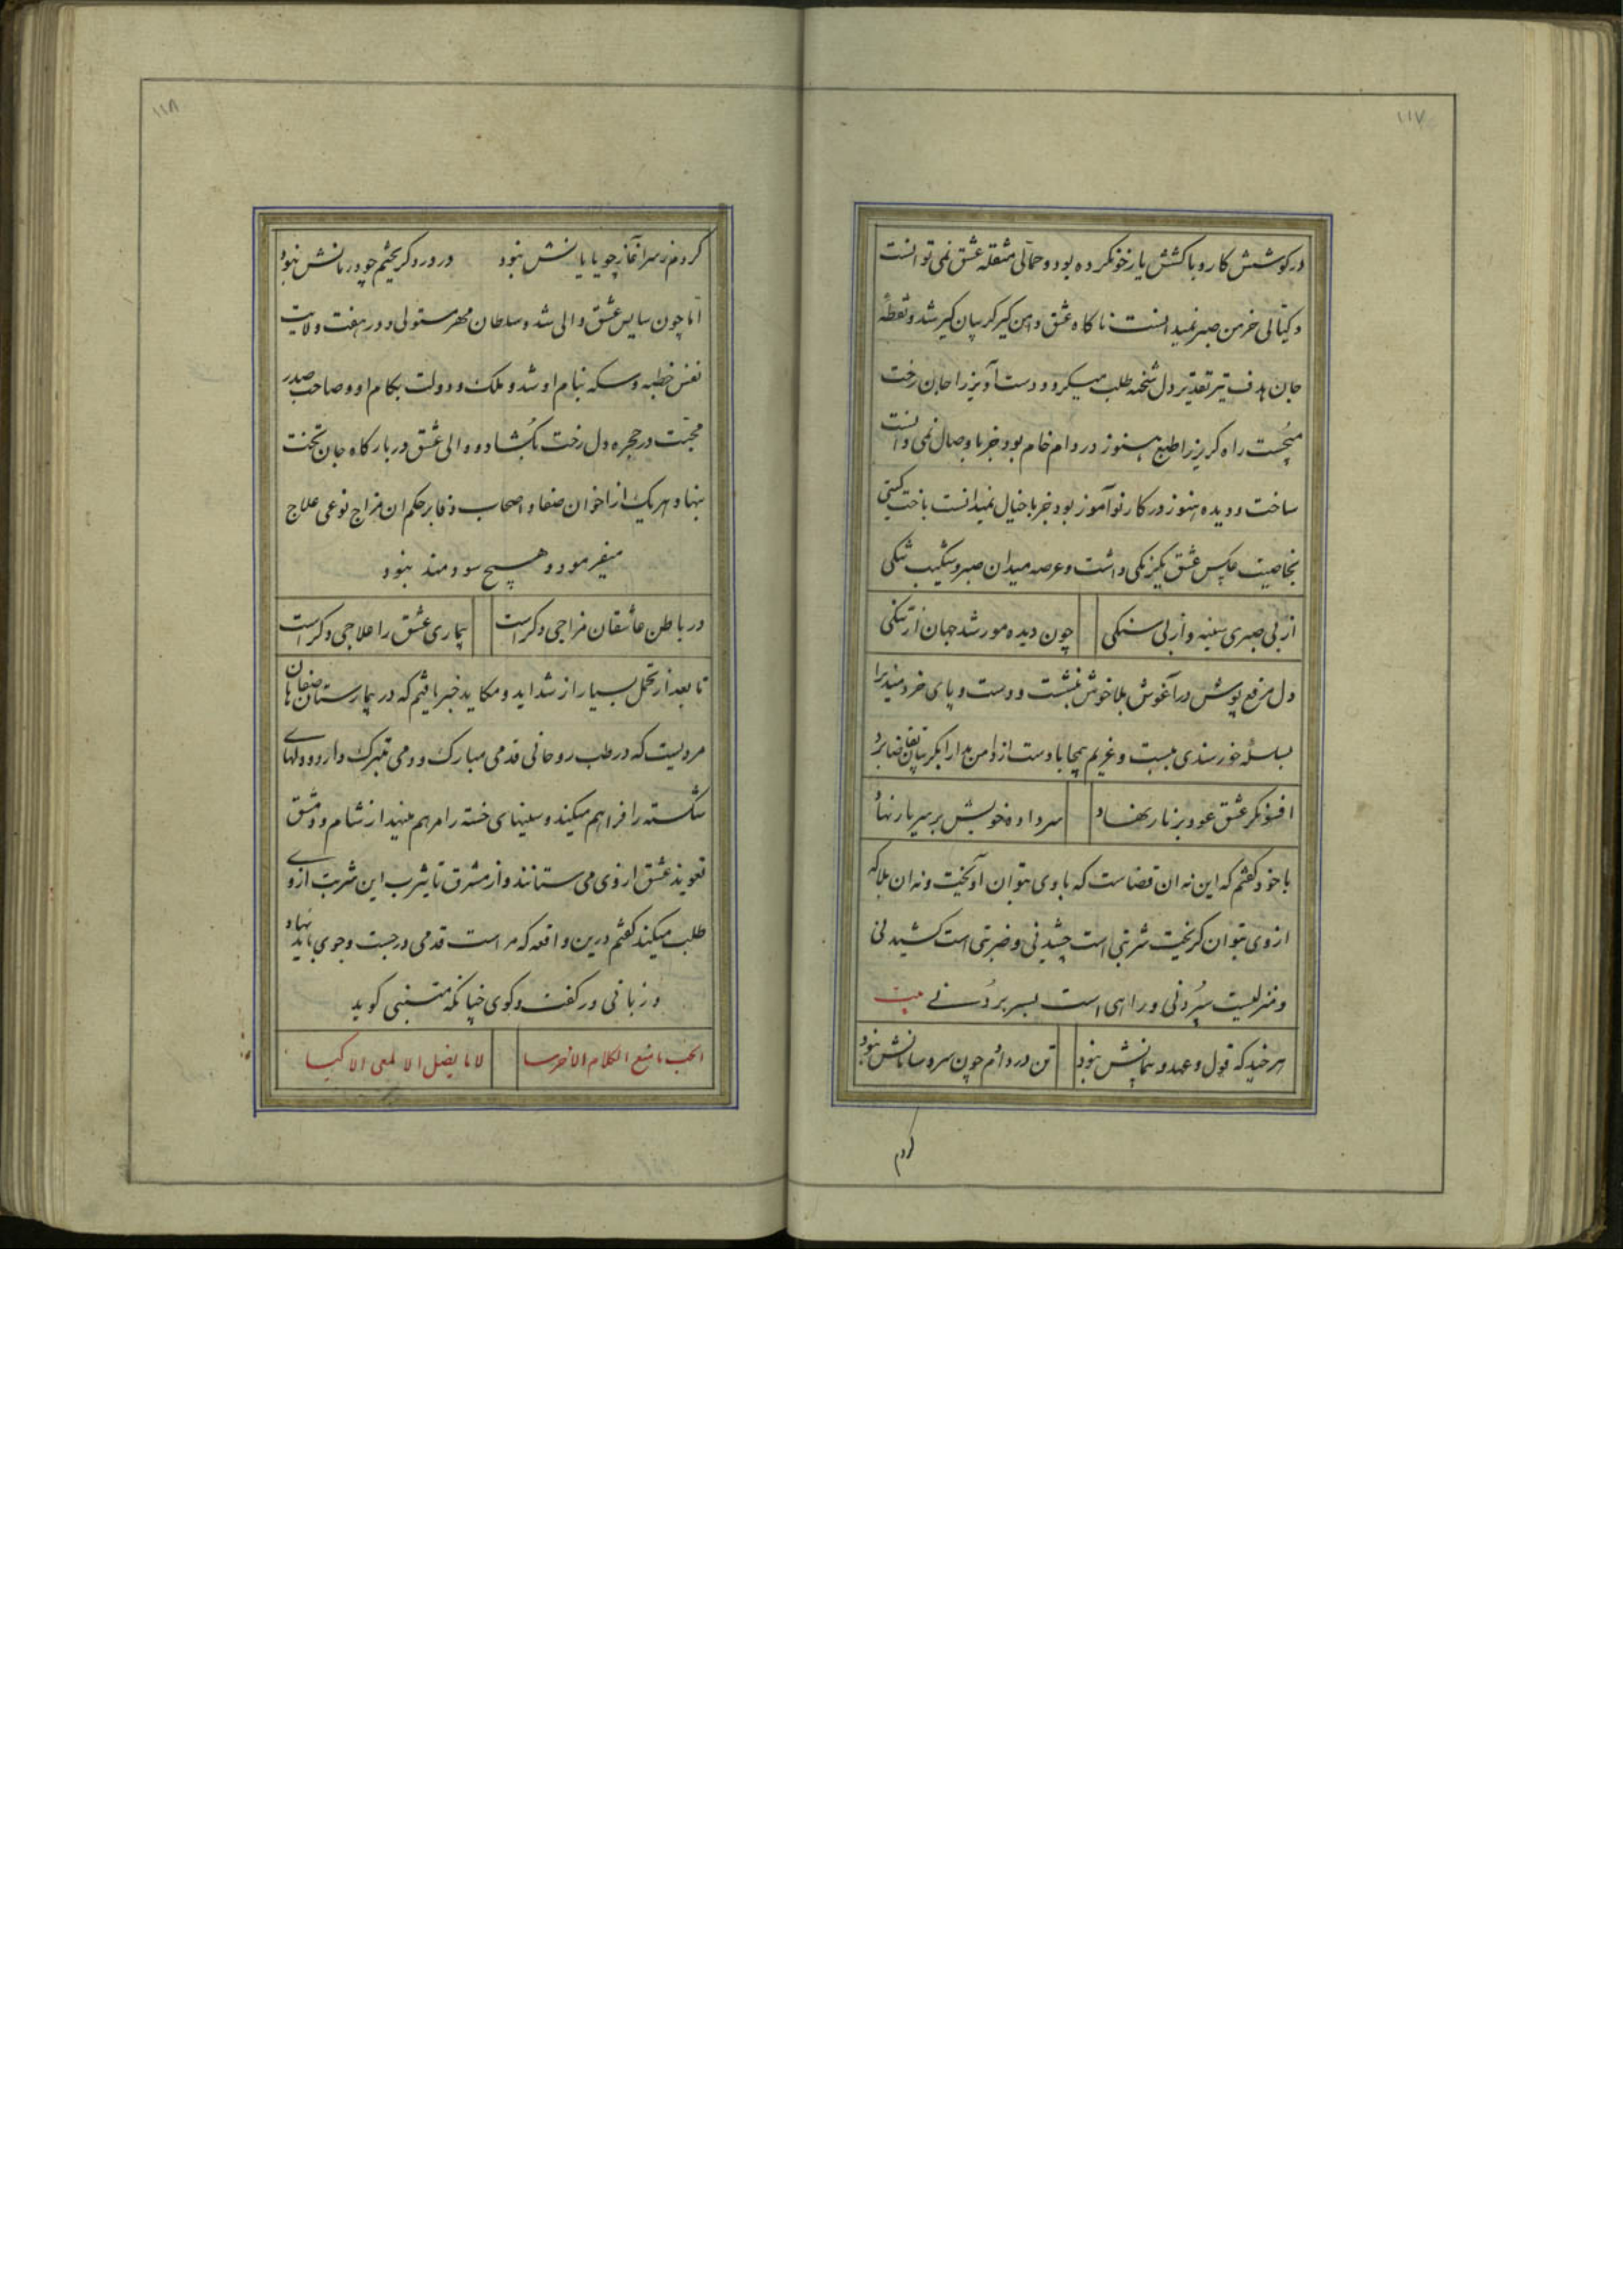 ۱۱۷
در کوشش کار و با کشش یار خو نکرده بود و حمالی مثقله عشق نمی توانست
و کیالی خرمن صبر نمیدانست ناکاه عشق دامن کیر کریبان کیر شد و نقطه
جان هدف تیر تقدیر دل شحنه طلب میکرد و دست آویز را جان رخت
میجست راه کریز را طبع هنوز در دام خام بود خبر با وصال نمی دانست
ساخت و دیده هنوز در کار نوآموز بود خبر با خیال نمیدانست باخت کیتی
بخاصیت عکس عشق یکرنکی داشت و عرصه میدان صبر و شکیب تنکی
از بی صبری سینه و از بی سنکی چون دیده مور شد جهان از تنکی
دل مرقع پوش در آغوش بلا خوش بنشست و دست و پای خردمند را
بسلسله خورسندی ببست و غریم بیمحابا دست از دامن مدارا بکریبان تقاضا برد
افسونکر عشق عود بر نار نهاد سر داده خویش بر سر یار نهاد
با خود کفتم که این نه ان قضاست که با وی بتوان آویخت و نه ان بلا که
از وی بتوان کریخت شربتی است چشیدنی و ضربتی است کشیدنی
و منزلیست سپردنی و راهی است بسر بردنی بیت
هر چند که قول و عهد و پیمانش نبود تن در دادم چون سر و سامانش نبود
کردم
۱۱۸
کردم ز سر آغاز چو پایانش نبود در درد کریختم چو درمانش نبود
اما چون سایس عشق والی شد و سلطان مهر مستولی و در هفت ولایت
نفس خطبه و سکه بنام او شد و ملک و دولت بکام او و صاحب صدر
محبت در حجره دل رخت بکشاد و والی عشق در بارکاه جان تخت
بنهاد هر یک از اخوان صفا و اصحاب وفا بر حکم ان مزاج نوعی علاج
میفرمود و هیچ سودمند نبود
در باطن عاشقان مزاجی دکر است بیماری عشق را علاجی دکر است
تا بعد از تحمل بسیار از شداید و مکاید خبر یافتم که در بیمارستان صفاهان
مردیست که در طب روحانی قدمی مبارک و دمی متبرک دارد و دلهای
شکسته را فراهم میکند و سینهای خسته را مرهم مینهد از شام و دمشق
تعویذ عشق از وی می ستانند و از مشرق تا یثرب این شربت از وی
طلب میکنند کفتم درین واقعه که مراست قدمی در جست و جوی باید نهاد
و زبانی در کفت و کوی چنانکه متنبی کوید
الحب ما منع الکلام الاخرسا لاما یضل الالمعی الاکیسا